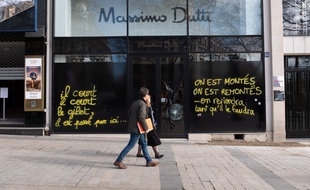 Massimo Dutti
Massimo Dutti
il court
il court
le gilet ?
il est passé par ici...
ON EST MONTÉS
ON EST REMONTÉS
on reviendra
tant qu'il le faudra